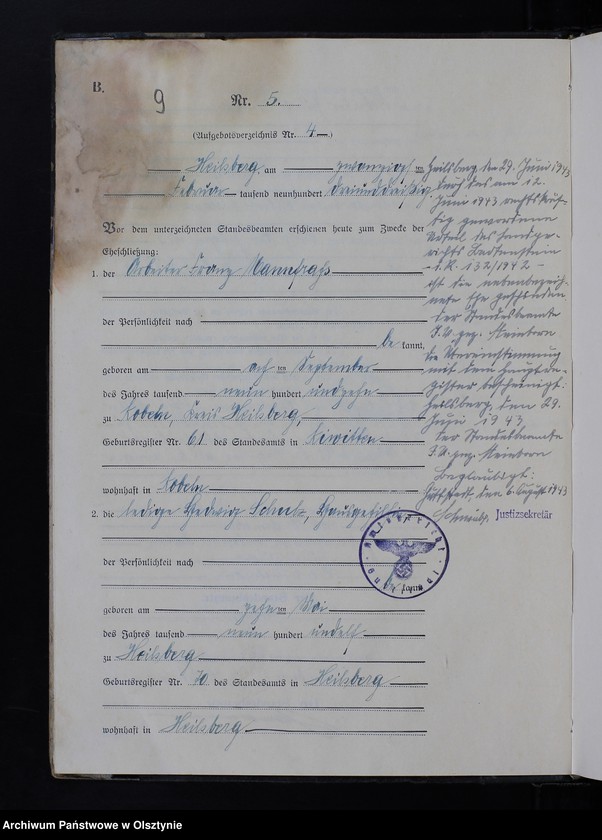 B.
9
Nr. 5.
(Aufgebotsverzeichnis Nr. 4)
Heilsberg, am zwanzigsten
Februar tausend neunhundert dreiunddreißig
Vor dem unterzeichneten Standesbeamten erschienen heute zum Zwecke der
Eheschließung:
1. der Arbeiter Franz
der Persönlichkeit nach
be kannt,
geboren am acht ten September
des Jahres tausend neun hundert undzehn
zu Kobeln, Kreis Heilsberg,
Geburtsregister Nr. 61 des Standesamts in Kiwitten
wohnhaft in Kobeln
2. die ledige Hedwig
der Persönlichkeit nach
be kannt,
geboren am zehn ten Mai
des Jahres tausend neun hundert undelf
zu Heilsberg
Geburtsregister Nr. 70 des Standesamts in Heilsberg
wohnhaft in Heilsberg
Heilsberg den 29. Juni 1943
Durch das am 12.
Juni 1943 rechtskräf-
tig gewordene
Urteil des Landge-
richts Bartenstein
- 2. R. 132/1942 -
ist die nebenbezeich-
nete Ehe geschieden
Der Standesbeamte
I.V. gez.
Die Übereinstimmung
mit dem Hauptre-
gister bescheinigt:
Heilsberg, den 29.
Juni 1943
Der Standesbeamte
I.V. gez.
Beglaubigt:
Guttstadt den 6. August 1943
Justizsekretär
Archiwum Państwowe w Olsztynie